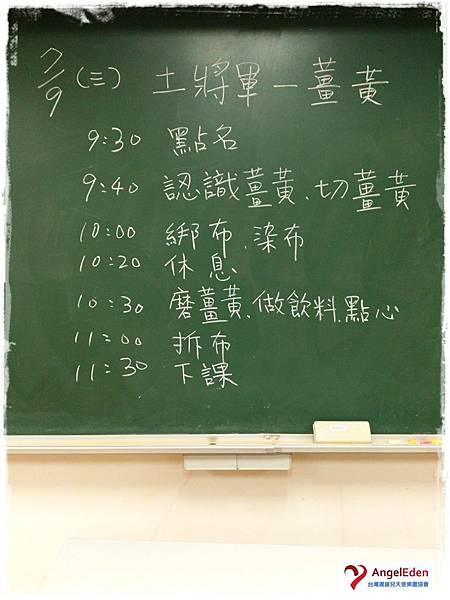 7/9 (三) 土將軍—薑黃
9:30 點名
9:40 認識薑黃、切薑黃
10:00 綁布、染布
10:20 休息
10:30 磨薑黃、做飲料、點心
11:00 拆布
11:30 下課
AngelEden
台灣遲緩兒天使樂園協會